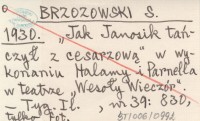 BRZOZOWSKI S.
1930. "Jak Janosik tań-
czył z cesarzową" w wy-
konaniu Halamy i Parnella
w teatrze "Wesoły Wieczór".
– Tyg. Il. , nr 39: 830,
tylko fot.
57/006/0992